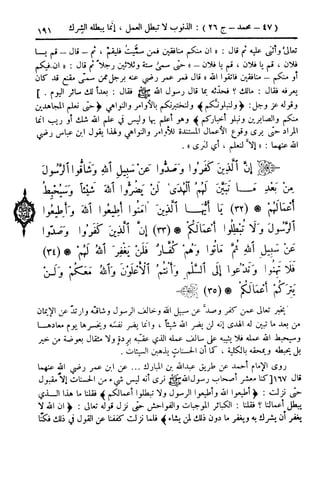 (٤٧ - محمد - ج ٢٦) : الذنوب لا تبطل العمل ، إنما يبطله الشرك ١٩١
تعالى وأثنى عليه ثم قال : « ان منكم منافقين فمن سميت فليقم ، ثم - قال - قم يا
فلان ، قم يا فلان ، قم يا فلان » - حتى سمى ستة وثلاثين رجلاً ثم قال : « ان فيكم
أو منكم - منافقين فاتقوا الله » قال فمر عمر رضي عنه برجل ممن سمى مقنع قد كان
يعرفه فقال : مالك ؟ فحدثه بما قال رسول الله ﷺ فقال : بعداً لك سائر اليوم . ]
وقوله عز وجل : ﴿ ولنبلونكم ﴾ ولنختبرنكم بالأوامر والنواهي ﴿ حتى نعلم المجاهدين
منكم والصابرين ونبلو أخباركم ﴾ وهو أعلم بها وليس في علم الله شك أو ريب انما
المراد حتى يرى وقوع الأعمال المستندة للأوامر والنواهي ولهذا يقول ابن عباس رضي
الله عنهما : « إلا لنعلم ، أي لنرى » .
إِنَّ الَّذِينَ كَفَرُوا وَصَدُّوا عَنْ سَبِيلِ اللهِ وَشَاقُّوا الرَّسُولَ
مِنْ بَعْدِ مَا تَبَيَّنَ لَهُمُ الْهُدَى لَنْ يَضُرُّوا اللهَ شَيْئًا وَسَيُحْبِطُ
أَعْمَالَهُمْ ﴿٣٢﴾ يَا أَيُّهَا الَّذِينَ آمَنُوا أَطِيعُوا اللهَ وَأَطِيعُوا
الرَّسُولَ وَلَا تُبْطِلُوا أَعْمَالَكُمْ ﴿٣٣﴾ إِنَّ الَّذِينَ كَفَرُوا وَصَدُّوا
عَنْ سَبِيلِ اللهِ ثُمَّ مَاتُوا وَهُمْ كُفَّارٌ فَلَنْ يَغْفِرَ اللهُ لَهُمْ ﴿٣٤﴾
فَلَا تَهِنُوا وَتَدْعُوا إِلَى السَّلْمِ وَأَنْتُمُ الْأَعْلَوْنَ وَاللهُ مَعَكُمْ وَلَنْ
يَتِرَكُمْ أَعْمَالَكُمْ ﴿٣٥﴾
يخبر تعالى عمن كفر وصد عن سبيل الله وخالف الرسول وشاقه وارتد عن الإيمان
من بعد ما تبين له الهدى إنه لن يضر الله شيئاً ، وانما يضر نفسه ويخسرها يوم معادها
وسيحبط الله عمله فلا يثيبه على سالف عمله الذي عقبه بردة ولا مثقال بعوضة من خير
بل يحبطه ويمحقه بالكلية ، كما أن الحسنات يذهبن السيئات .
روى الإمام أحمد عن طريق عبد الله بن المبارك ... عن ابن عمر رضي الله عنهما
قال ١٦٧ [ كنا معشر أصحاب رسول الله ﷺ نرى أنه ليس شيء من الحسنات إلا مقبول
حتى نزلت : ﴿ أطيعوا الله وأطيعوا الرسول ولا تبطلوا أعمالكم ﴾ فقلنا ما هذا الــذي
يبطل أعمالنا ؟ فقلنا : الكبائر الموجبات والفواحش حتى نزل قوله تعالى : ﴿ ان الله لا
يغفر أن يشرك به ويغفر ما دون ذلك لمن يشاء ﴾ فلما نزلت كففنا عن القول في ذلك فكنّا